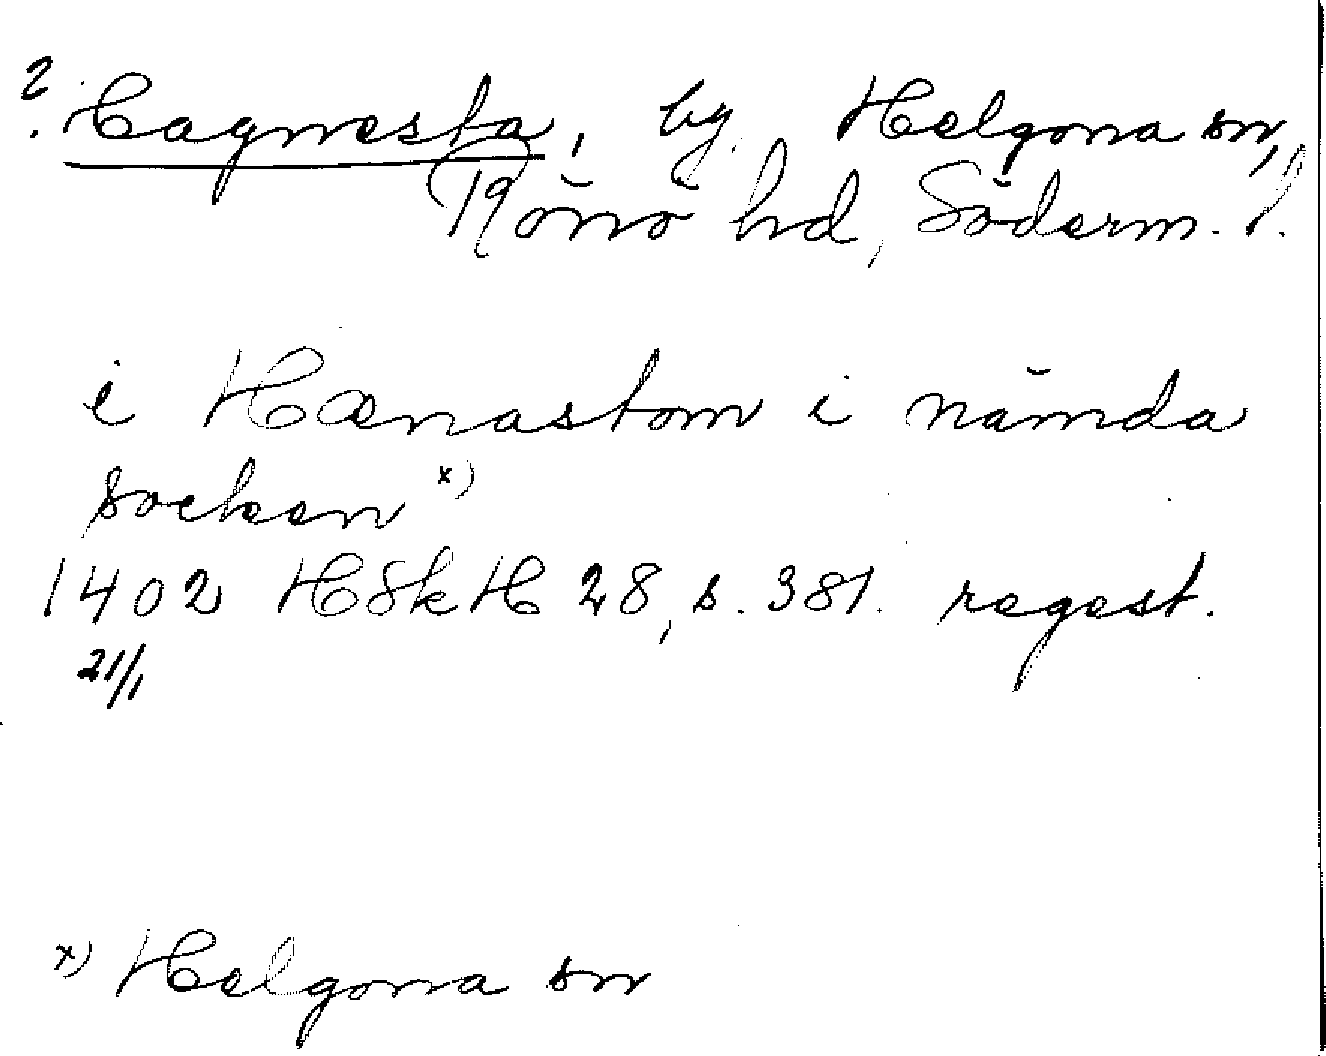 ? Hagnesta, by. Helgona sn,
Rönö hd, Söderm. l.
i Hænastom i nämda
socken x)
1402 HSkH 28, s. 381. regest.
21/1
x) Helgona sn